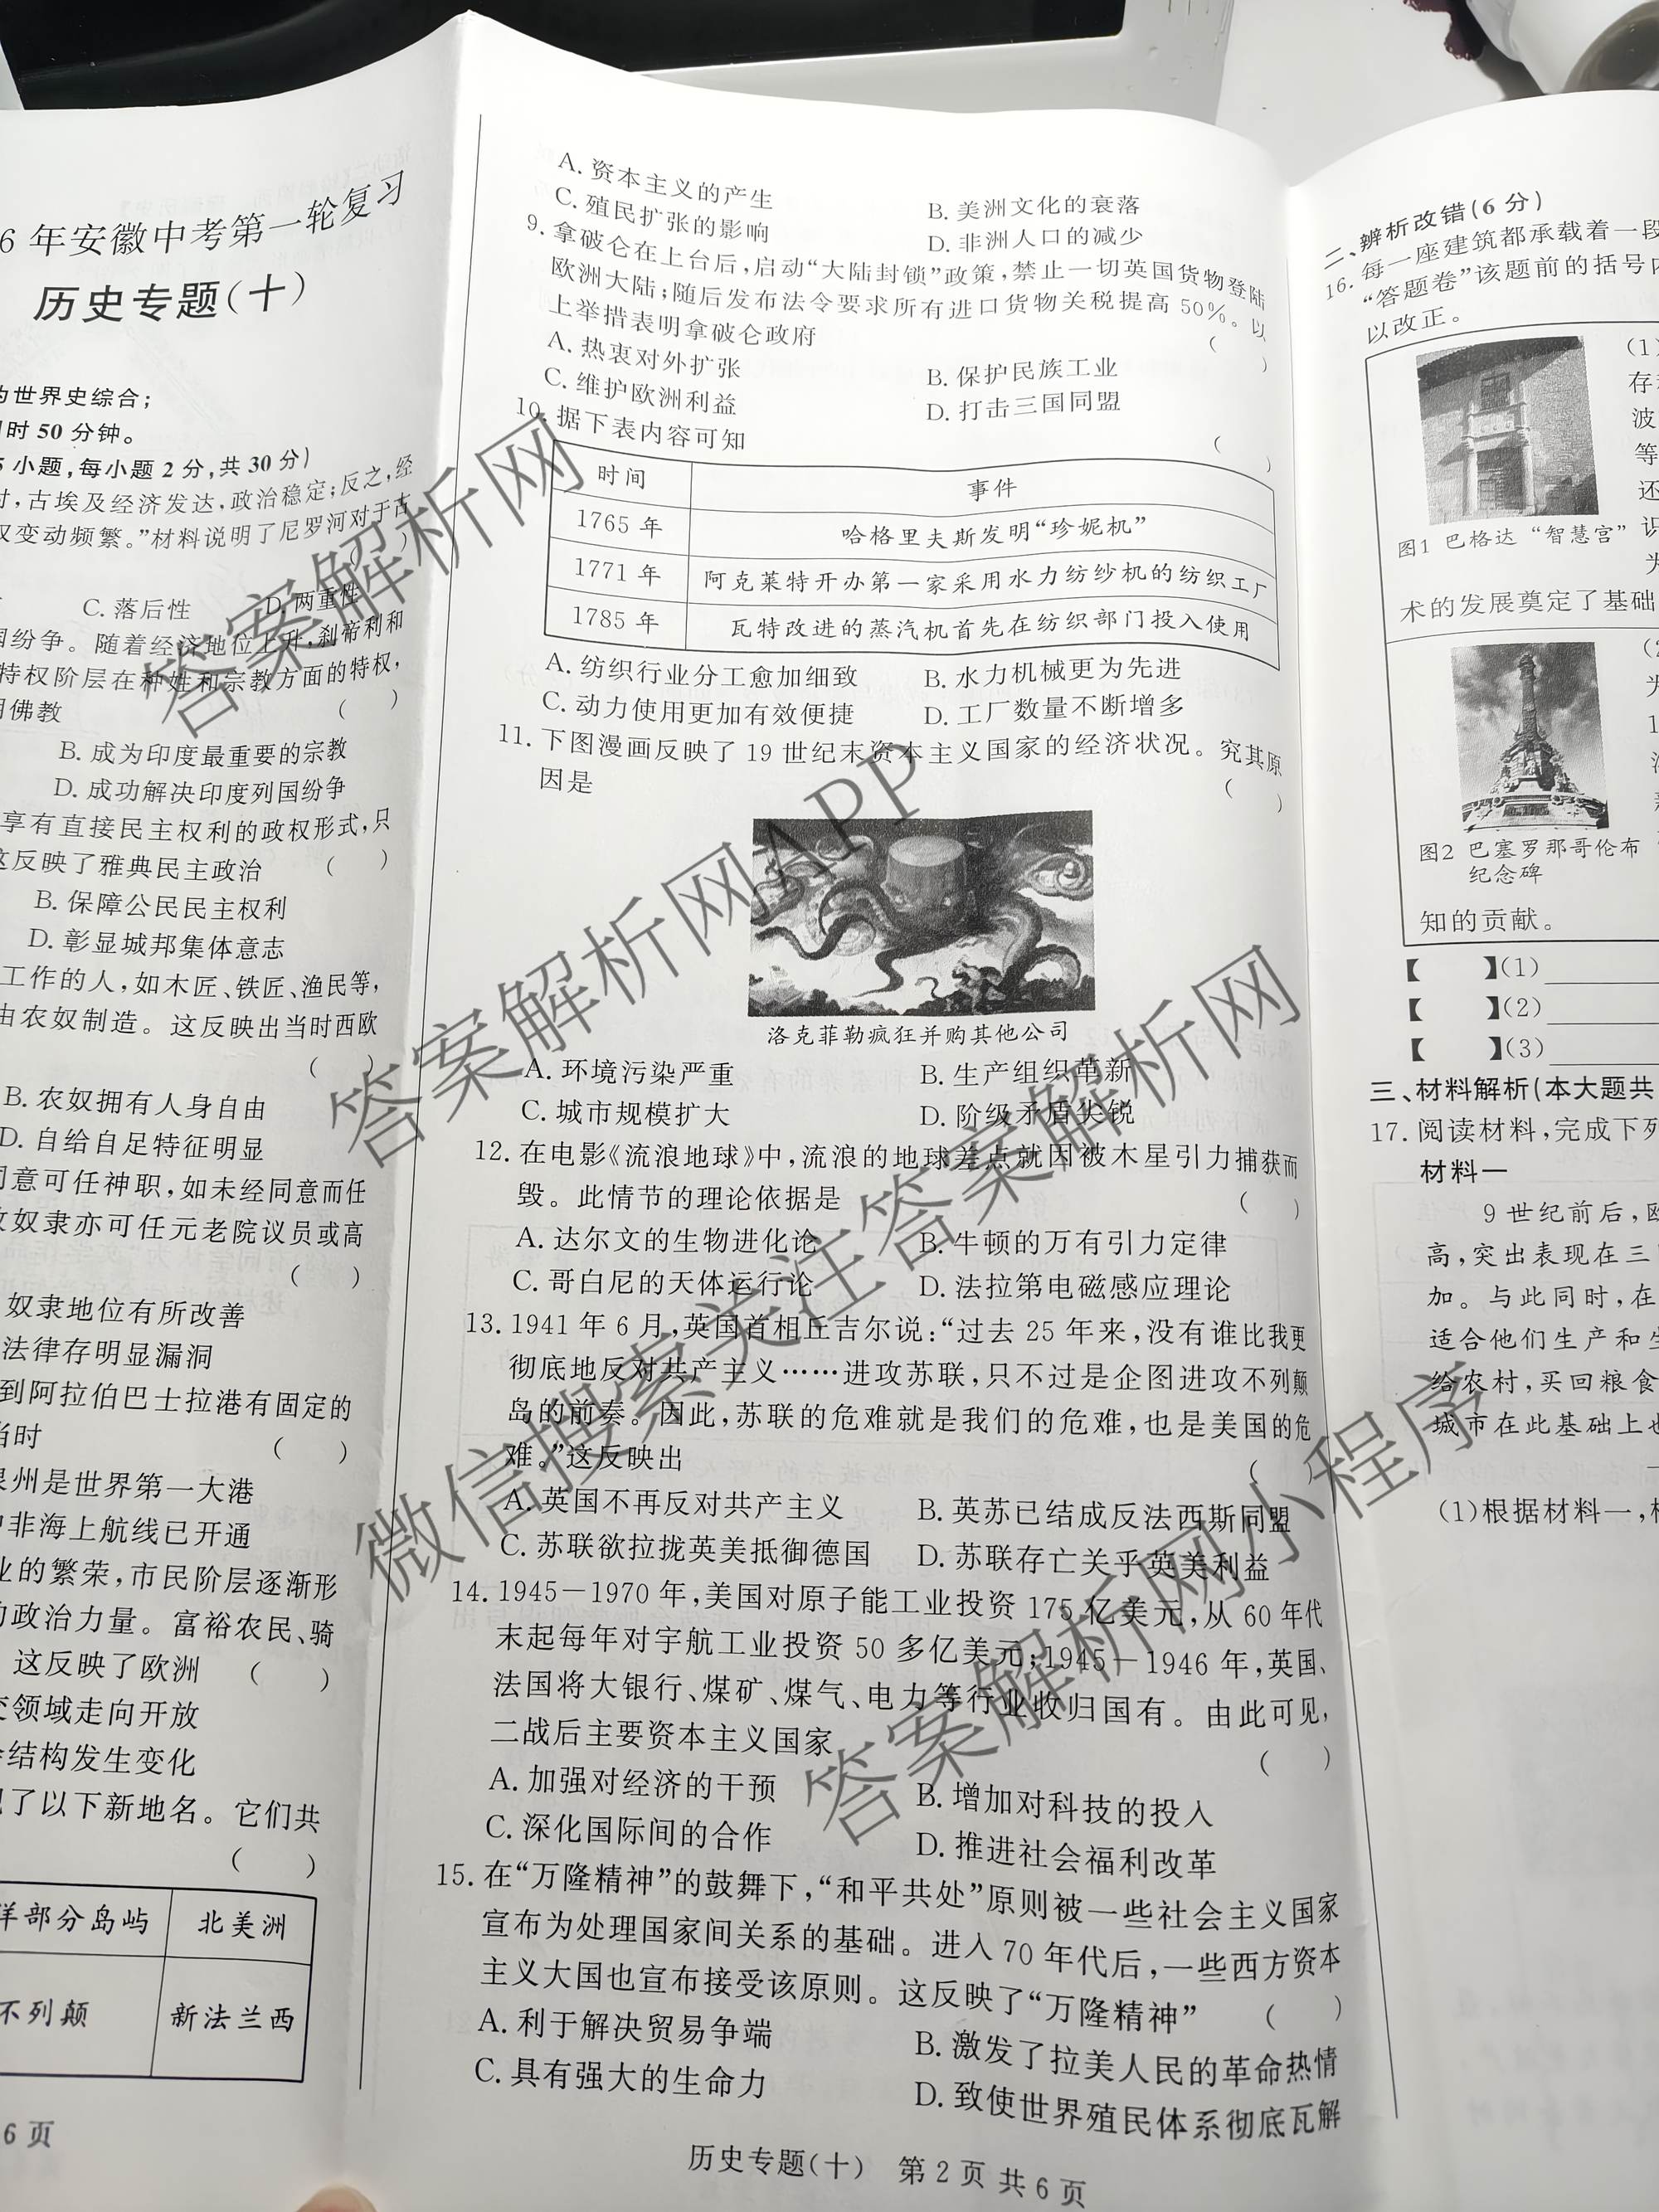 6年安徽中考第一轮复习
历史专题(十)
为世界史综合;
时50分钟。
5小题,每小题2分,共30分)
时,古埃及经济发达,政治稳定;反之,经
权变动频繁。”材料说明了尼罗河对于古
( )
C.落后性 D.两重性
国纷争。随着经济地位上升,刹帝利和
特权阶层在种姓和宗教方面的特权,
明佛教 ( )
B.成为印度最重要的宗教
D.成功解决印度列国纷争
享有直接民主权利的政权形式,只
这反映了雅典民主政治 ( )
B.保障公民民主权利
D.彰显城邦集体意志
工作的人,如木匠、铁匠、渔民等,
由农奴制造。这反映出当时西欧
( )
B.农奴拥有人身自由
D.自给自足特征明显
同意可任神职,如未经同意而任
奴隶亦可任元老院议员或高
( )
奴隶地位有所改善
法律存明显漏洞
到阿拉伯巴士拉港有固定的
当时 ( )
泉州是世界第一大港
中非海上航线已开通
业的繁荣,市民阶层逐渐形
的政治力量。富裕农民、骑
这反映了欧洲 ( )
领域走向开放
结构发生变化
现了以下新地名。它们共
( )
洋部分岛屿 北美洲
不列颠 新法兰西
6页
A.资本主义的产生 B.美洲文化的衰落
C.殖民扩张的影响 D.非洲人口的减少
9.拿破仑在上台后,启动“大陆封锁”政策,禁止一切英国货物登陆
欧洲大陆;随后发布法令要求所有进口货物关税提高50%。以
上举措表明拿破仑政府 ( )
A.热衷对外扩张 B.保护民族工业
C.维护欧洲利益 D.打击三国同盟
10.据下表内容可知 ( )
时间 事件
1765年 哈格里夫斯发明“珍妮机”
1771年 阿克莱特开办第一家采用水力纺纱机的纺织工厂
1785年 瓦特改进的蒸汽机首先在纺织部门投入使用
A.纺织行业分工愈加细致 B.水力机械更为先进
C.动力使用更加有效便捷 D.工厂数量不断增多
11.下图漫画反映了19世纪末资本主义国家的经济状况。究其原
因是 ( )
洛克菲勒疯狂并购其他公司
A.环境污染严重 B.生产组织革新
C.城市规模扩大 D.阶级矛盾尖锐
12.在电影《流浪地球》中,流浪的地球差点就因被木星引力捕获而
毁。此情节的理论依据是 ( )
A.达尔文的生物进化论 B.牛顿的万有引力定律
C.哥白尼的天体运行论 D.法拉第电磁感应理论
13.1941年6月,英国首相丘吉尔说:“过去25年来,没有谁比我更
彻底地反对共产主义……进攻苏联,只不过是企图进攻不列颠
岛的前奏。因此,苏联的危难就是我们的危难,也是美国的危
难。”这反映出 ( )
A.英国不再反对共产主义 B.英苏已结成反法西斯同盟
C.苏联欲拉拢英美抵御德国 D.苏联存亡关乎英美利益
14.1945-1970年,美国对原子能工业投资175亿美元,从60年代
末起每年对宇航工业投资50多亿美元;1945-1946年,英国、
法国将大银行、煤矿、煤气、电力等行业收归国有。由此可见,
二战后主要资本主义国家 ( )
A.加强对经济的干预 B.增加对科技的投入
C.深化国际间的合作 D.推进社会福利改革
15.在“万隆精神”的鼓舞下,“和平共处”原则被一些社会主义国家
宣布为处理国家间关系的基础。进入70年代后,一些西方资本
主义大国也宣布接受该原则。这反映了“万隆精神” ( )
A.利于解决贸易争端 B.激发了拉美人民的革命热情
C.具有强大的生命力 D.致使世界殖民体系彻底瓦解
历史专题(十) 第2页 共6页
二、辨析改错(6分)
16.每一座建筑都承载着一段
“答题卷”该题前的括号内
以改正。
(1)
存
波
等
还
识
图1 巴格达“智慧宫”
术的发展奠定了基础
(2
1
图2 巴塞罗那哥伦布
纪念碑
知的贡献。
【 】(1)
【 】(2)
【 】(3)
三、材料解析(本大题共
17.阅读材料,完成下列
材料一
9世纪前后,欧
高,突出表现在三
加。与此同时,在
适合他们生产和生
给农村,买回粮食
城市在此基础上也
(1)根据材料一,
答案解析网
答案解析网APP
微信搜索关注答案解析网
答案解析网小程序